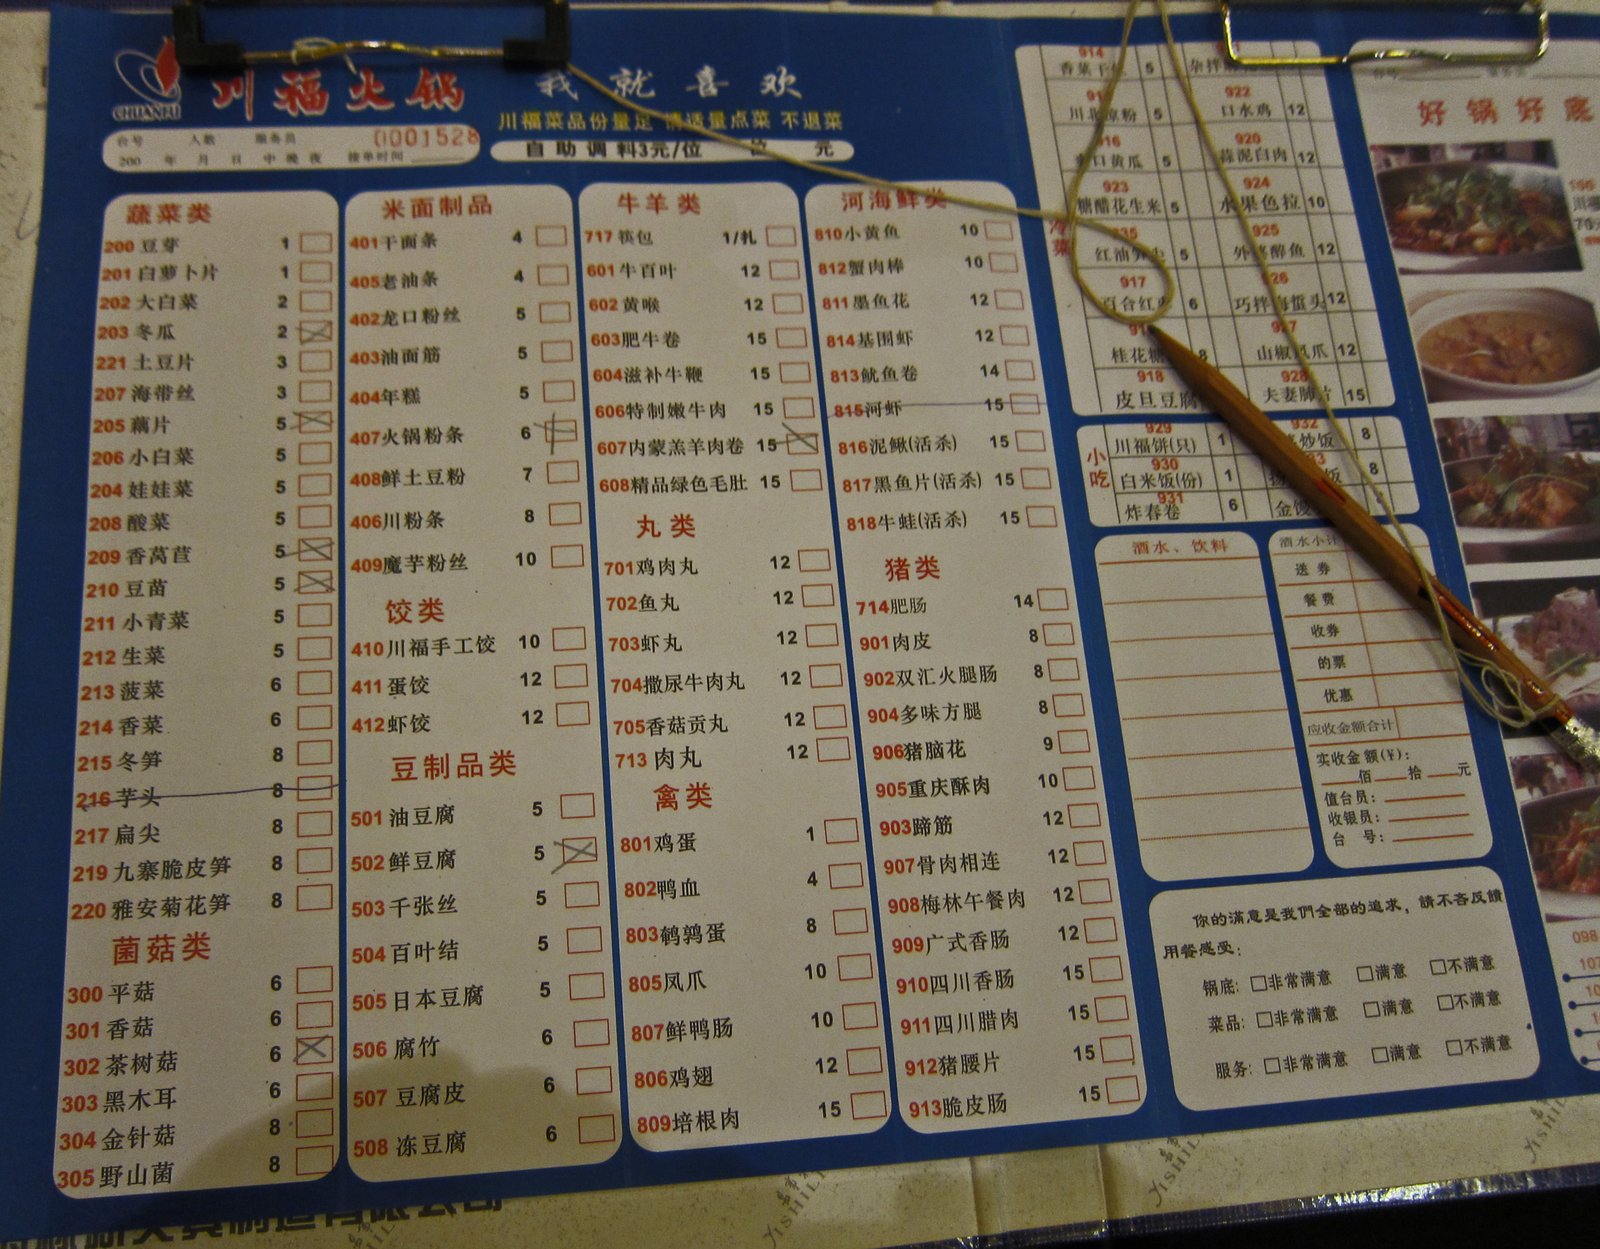 川福火锅
CHUANFU
我就喜欢
川福菜品份量足 请适量点菜 不退菜
自助调料3元/位 位 元
台号 人数 服务员 0001528
200 年 月 日 中 晚 夜 接单时间
蔬菜类
200 豆芽 1
201 白萝卜片 1
202 大白菜 2
203 冬瓜 2
221 土豆片 3
207 海带丝 3
205 藕片 5
206 小白菜 5
204 娃娃菜 5
208 酸菜 5
209 香莴苣 5
210 豆苗 5
211 小青菜 5
212 生菜 5
213 菠菜 6
214 香菜 6
215 冬笋 8
216 芋头 8
217 扁尖 8
219 九寨脆皮笋 8
220 雅安菊花笋 8
菌菇类
300 平菇 6
301 香菇 6
302 茶树菇 6
303 黑木耳 6
304 金针菇 8
305 野山菌 8
米面制品
401干面条 4
405老油条 4
402龙口粉丝 5
403油面筋 5
404年糕 5
407火锅粉条 6
408鲜土豆粉 7
406川粉条 8
409魔芋粉丝 10
饺类
410川福手工饺 10
411 蛋饺 12
412虾饺 12
豆制品类
501 油豆腐 5
502 鲜豆腐 5
503 千张丝 5
504 百叶结 5
505 日本豆腐 5
506 腐竹 6
507 豆腐皮 6
508 冻豆腐 6
牛羊类
717 筷包 1/扎
601牛百叶 12
602黄喉 12
603肥牛卷 15
604滋补牛鞭 15
606特制嫩牛肉 15
607内蒙羔羊肉卷 15
608精品绿色毛肚 15
丸类
701鸡肉丸 12
702鱼丸 12
703虾丸 12
704撒尿牛肉丸 12
705香菇贡丸 12
713 肉丸 12
禽类
801鸡蛋 1
802鸭血 4
803鹌鹑蛋 8
805凤爪 10
807鲜鸭肠 10
806鸡翅 12
809培根肉 15
河海鲜类
810小黄鱼 10
812蟹肉棒 10
811墨鱼花 12
814基围虾 12
813鱿鱼卷 14
815河虾 15
816泥鳅(活杀) 15
817黑鱼片(活杀) 15
818牛蛙(活杀) 15
猪类
714肥肠 14
901肉皮 8
902双汇火腿肠 8
904多味方腿 8
906猪脑花 9
905重庆酥肉 10
903蹄筋 12
907骨肉相连 12
908梅林午餐肉 12
909广式香肠 12
910四川香肠 15
911四川腊肉 15
912猪腰片 15
913脆皮肠 15
冷菜
914
5
922
5 口水鸡 12
920
黄瓜 5 蒜泥白肉 12
923 924
糖醋花生米 5 水果色拉 10
925
红油 5 醉鱼 12
917
百合红 6 巧拌海蜇头 12
桂花糖 8 山椒凤爪 12
918 928
皮旦豆腐 夫妻肺片 15
小吃
929 932
川福饼(只) 1 炒饭 8
930
白米饭(份) 1 饭 8
931
炸春卷 6
酒水、饮料
酒水小计
送券
餐费
收券
的票
优惠
应收金额合计
实收金额(¥):
佰 拾 元
值台员:
收银员:
台 号:
你的滿意是我們全部的追求，請不吝反饋
用餐感受:
锅底: □非常满意 □满意 □不满意
菜品: □非常满意 □满意 □不满意
服务: □非常满意 □满意 □不满意
好锅好底
YISHILI
YISHILI
YISHILI